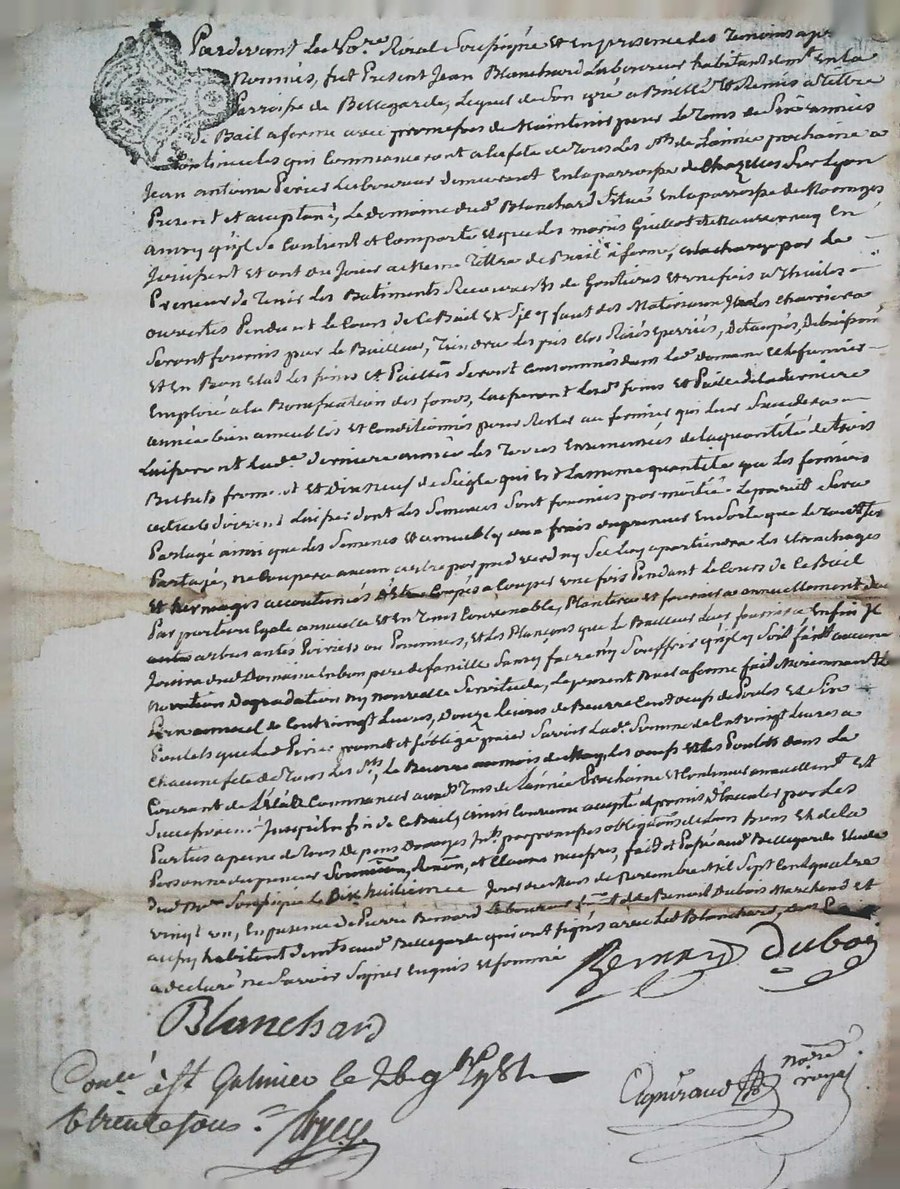 Pardevant Le No.re Roial Soussigné et en presence des Temoins apr
Nommés, fut Present Jean Blanchard Laboureur habitant demt En la
Parroisse de Bellegarde, Lequel de Son gré a Baillé et Remis a Tittre
de Bail a ferme avec promesses de Maintenir pour Le Tems de Six années
Continuelles qui Commanceront a la fete de Tous Les Sts de L'année prochaine a
Jean antoine Perier Laboureur demeurant En la parroisse de Chazelles Sur Lyon
Present et acceptant, Le domaine dud. Blanchard Situé En la parroisse de
ainsy qu'il Se Contient et Comporte et que des mariés Guillot et En
Jouissent et ont du Jouir a meme Tittre de Bail a ferme, a la charge par Le
Preneur de Tenir Les Batiments Recouverts de Goutieres et une fois a Thuiles
ouvertes Pendant Le Cours de Ce Bail et S'il y faut des Materiaux Les charrier a
Seront fournis par Le Bailleur, Tiendra Les prés Clos Rasés Eperriés, Detaupés,
et En Bon Etat Les foins et Pailles Seront Consommés dans Led. domaine et Le fumier
Emploié a La Bonification des fonds, Laisseront Lesd. foins et Paille de la derniere
année bien ameublés et Conditionnés pour Rester au fermier qui Leur Succedera
Laisseront Lad.e derniere année Les Terres Ensemencées de La quantité de trois
Bichets froment et Dix neuf de Seigle qui Est La meme quantité que Les fermiers
actuels doivent Laisser dont Les Semences Sont fournies par moitié Le produit Sera
Partagé ainsi que des Semences et ameubly aux frais du preneur En Sorte que Le tout Se
Partage, ne Coupera aucun arbre par pied verd ny Sec Luy apartiendra Les Ebranchages
et acoutumés d'Etre Coupés a Couper une fois Pendant Le Cours de Ce Bail
Par portion Egale annuelle et En Tems Convenable, Plantera et fournira annuellement
arbres antés Poiriers ou Pommiers, et Les Plançons que Le Bailleur Luy fournira Enfin Il
Jouira dud. Domaine En bon pere de famille Sans y faire ny Souffrir qu'il y Soit fait aucune
novation Degradation ny nouvelle Servitude, Le present Bail a ferme fait Moiennant Le
Prix annuel de Cent vingt Livres, Douze Livres de Beurre Cent oeufs de Poules et Six
Poulets que Led. Perier promet et S'oblige paier Savoir Lad. Somme de Cent vingt Livres a
chacune fete de Tous Les Sts, Le Beurre au mois de May, Les oeufs et Les Poulets dans Le
Courant de L'Eté a Commancer aud. Tems de L'année Prochaine et Continuer annuellemt Et
Successivemt Jusqu'En fin de Ce Bail, ainsi Convenu accepté et promis D'Executer par Les
Parties a peine de Tous depens Domages Ints par promesses obligaõns de Leurs Biens et de La
Personne du preneur Soumissõn, Renõn, et Clauses necessres, fait et Passé aud. Bellegarde Etude
Dud. No.re Soussigné Le Dix huitieme Jour du Mois de Novembre mil Sept Cent quatre
vingt un, En presence de Pierre Bernard Laboureur et de Benoit Dubois Marchand et
aussy habitant demts aud. Bellegarde qui ont Signés avec Led. Blanchard,
a declaré ne Savoir Signer Enquis et Sommé
Bernard Duboi
Blanchard
Conlé a St Galmier le 26 9bre 1781
R trente sous
nore royal